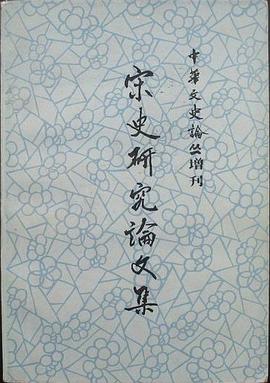 中华文史論丛增刊
宋史研究論文集